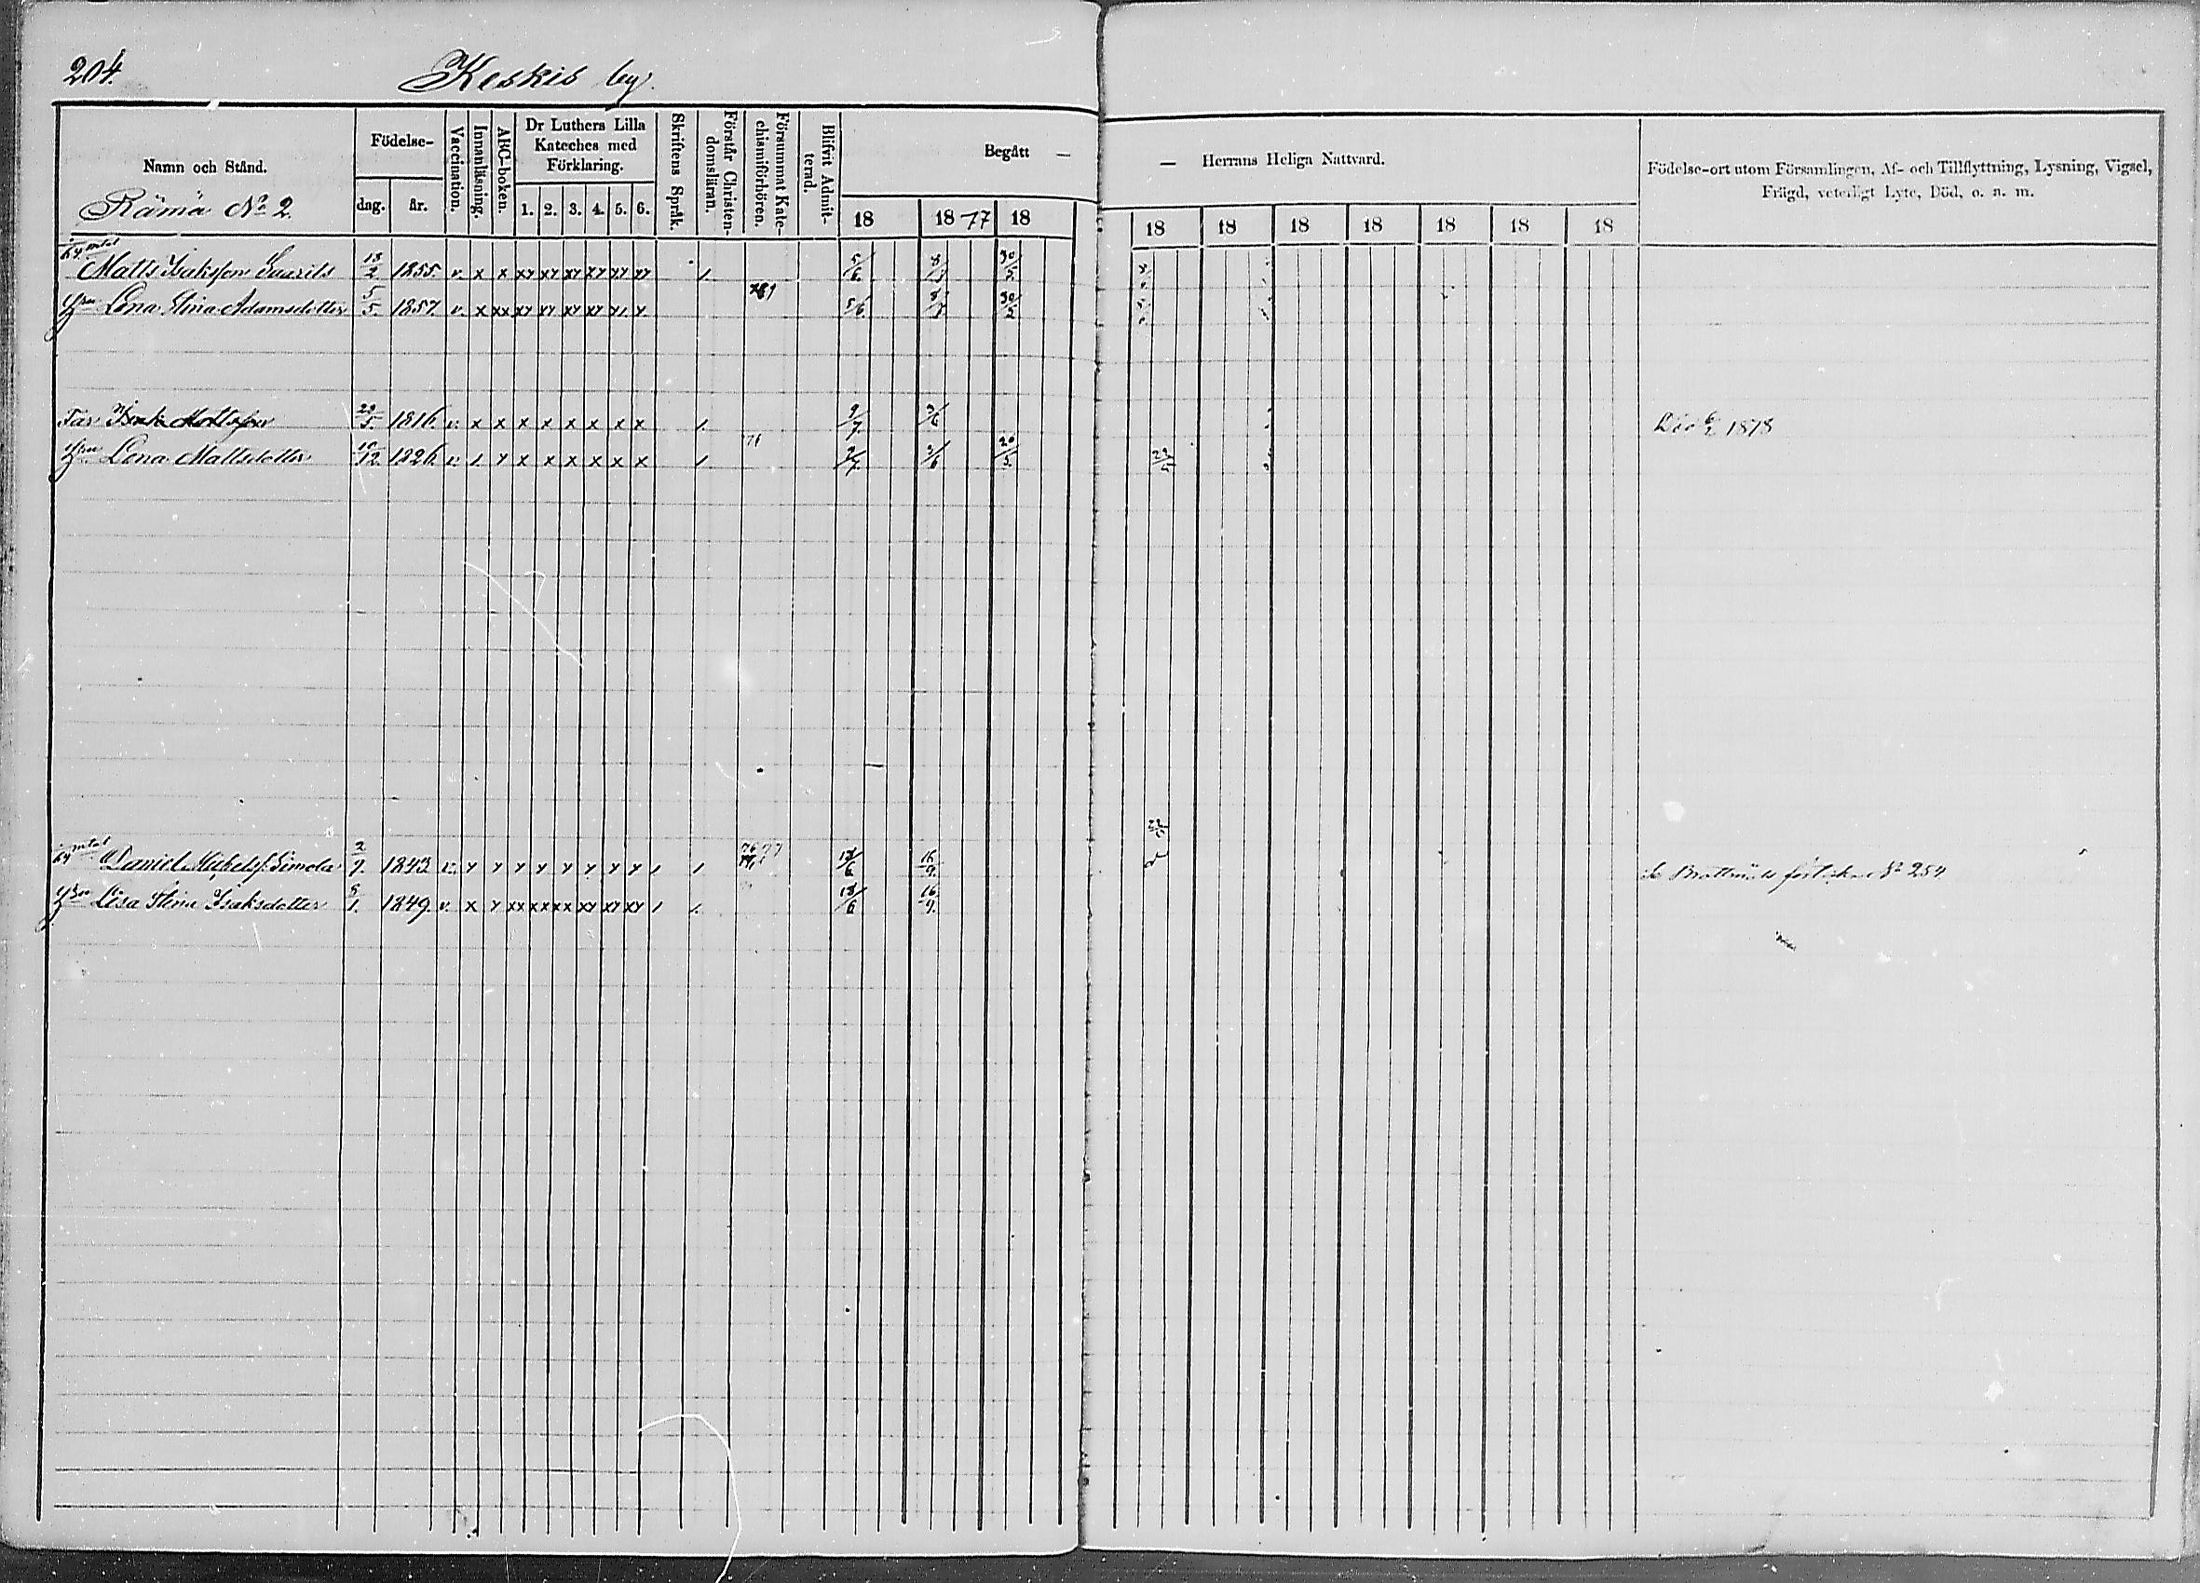 204.
Keskis by.
Namn och Stånd.
Födelse-
dag.
år.
Vaccination.
Innanläsning.
ABC-boken.
Dr Luthers Lilla
Kateches med
Förklaring.
1. 2. 3. 4. 5. 6.
Skriftens Språk.
Förstår Christen-
domsläran.
Försummat Kate-
chismiförhören.
Blifvit Admit-
terad.
Begått —
— Herrans Heliga Nattvard.
Födelse-ort utom Församlingen, Af- och Tillflyttning, Lysning, Vigsel,
Frägd, veterligt Lyte, Död, o. s. m.
Rämä No 2.
18 18 77 18
18 18 18 18 18 18 18
Matts Isaksson 18/2 1855. v. x x xy xy xy xy xy xy 1. 5/6 8/7 30/5
Hu Lena Stina Adamsdotter 5/5 1857. v. x xx xy xy xy xy 5/6 8/7 30/5
Far Isak Mattsson 29/5 1816. v. x x x x x x x x 1. 9/7 3/6 Död 6/2 1878
Hu Lena Mattsdotter 10/12 1826. v. 1 y x x x x x x 1 9/7 3/6 20/5 22/5
Daniel Simola 2/9. 1843. v. y y y y y y y y 1 1 76 77 18/6 16/9.
Hu Lisa Stina Isaksdotter 9/1. 1849. v. x y xx xx xx xy xy xy 1 1. 18/6 16/9.
No 254